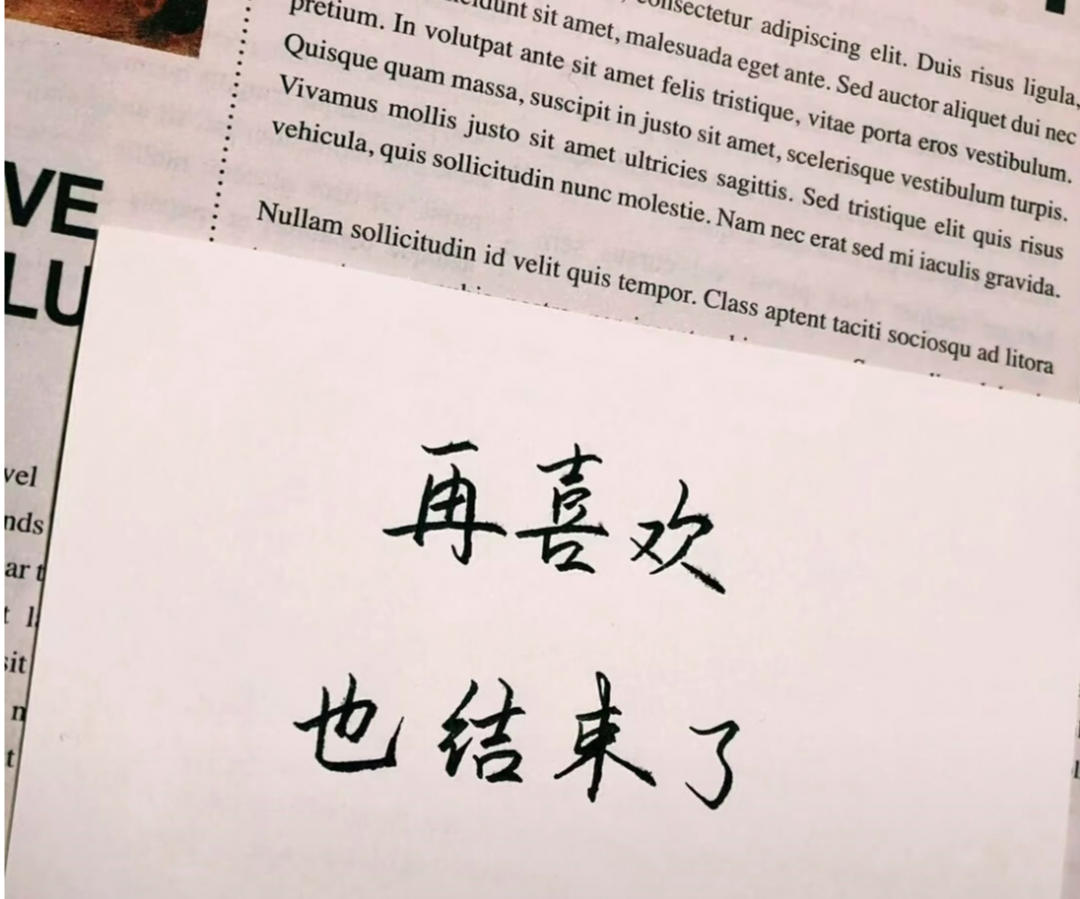 consectetur adipiscing elit. Duis risus ligula,
sit amet, malesuada eget ante. Sed auctor aliquet dui nec
pretium. In volutpat ante sit amet felis tristique, vitae porta eros vestibulum.
Quisque quam massa, suscipit in justo sit amet, scelerisque vestibulum turpis.
Vivamus mollis justo sit amet ultricies sagittis. Sed tristique elit quis risus
vehicula, quis sollicitudin nunc molestie. Nam nec erat sed mi iaculis gravida.
Nullam sollicitudin id velit quis tempor. Class aptent taciti sociosqu ad litora
VE
LU
vel
nds
ar t
sit
n
t
再喜欢
也结束了